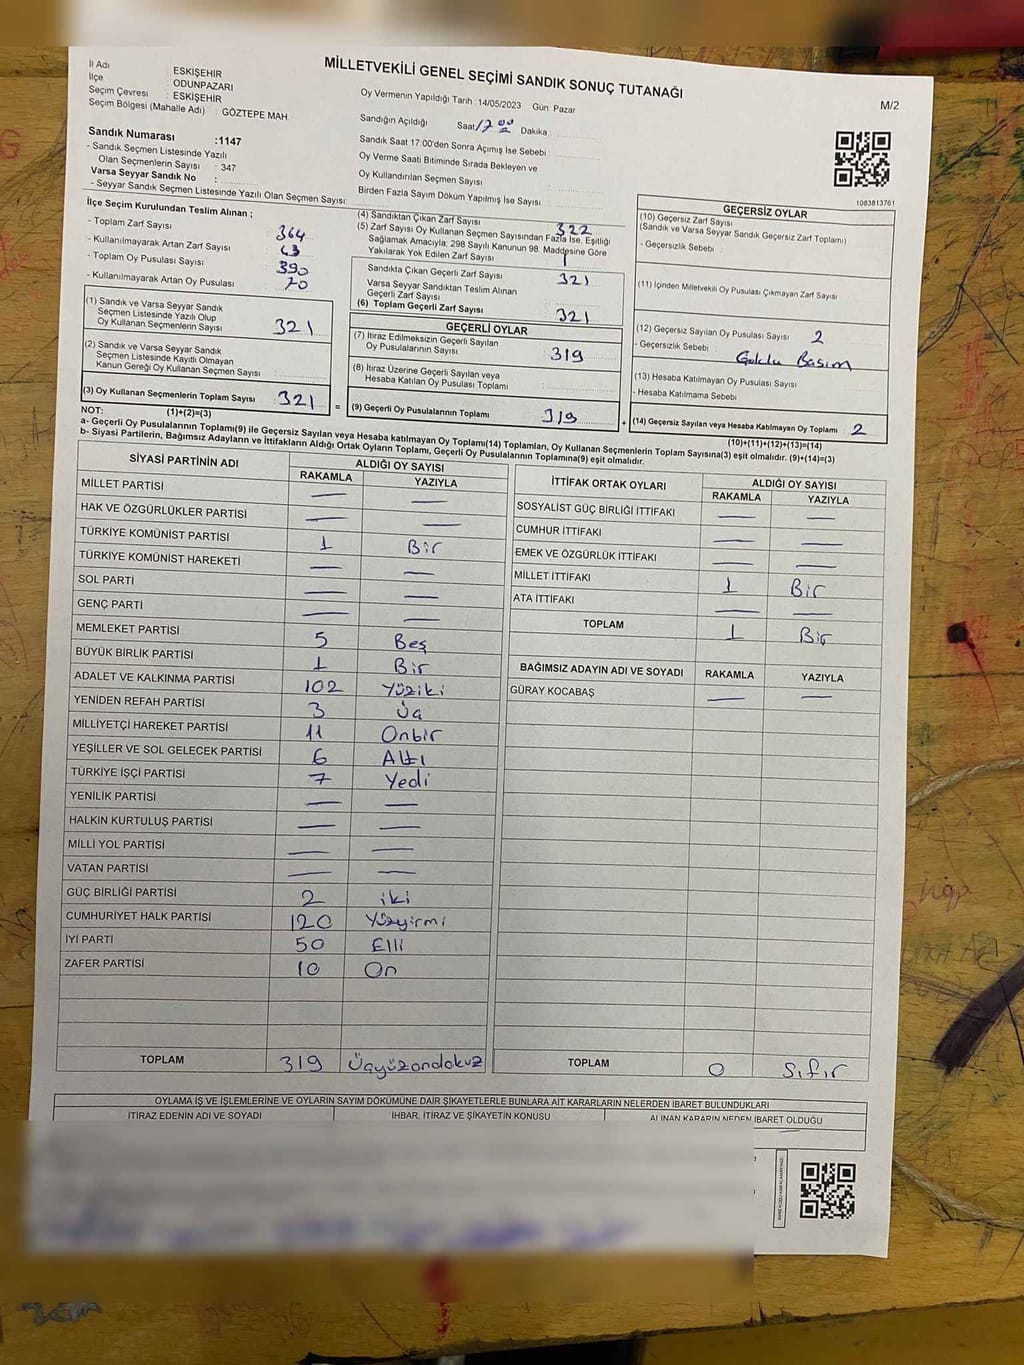 MİLLETVEKİLİ GENEL SEÇİMİ SANDIK SONUÇ TUTANAĞI
M/2
İl Adı ESKİŞEHİR
İlçe ODUNPAZARI
Seçim Çevresi : ESKİŞEHİR
Seçim Bölgesi (Mahalle Adı) : GÖZTEPE MAH
Sandık Numarası :1147
- Sandık Seçmen Listesinde Yazılı
Olan Seçmenlerin Sayısı : 347
Varsa Seyyar Sandık No :
- Seyyar Sandık Seçmen Listesinde Yazılı Olan Seçmen Sayısı:
Oy Vermenin Yapıldığı Tarih : 14/05/2023 Gün: Pazar
Sandığın Açıldığı Saat 17 00 Dakika
Sandık Saat 17:00'den Sonra Açımış İse Sebebi :
Oy Verme Saati Bitiminde Sırada Bekleyen ve
Oy Kullandırılan Seçmen Sayısı :
Birden Fazla Sayım Döküm Yapılmış İse Sayısı :
1083813761
İlçe Seçim Kurulundan Teslim Alınan ;
- Toplam Zarf Sayısı 364
- Kullanılmayarak Artan Zarf Sayısı 43
- Toplam Oy Pusulası Sayısı 390
- Kullanılmayarak Artan Oy Pusulası 70
(1) Sandık ve Varsa Seyyar Sandık
Seçmen Listesinde Yazılı Olup
Oy Kullanan Seçmenlerin Sayısı 321
(2) Sandık ve Varsa Seyyar Sandık
Seçmen Listesinde Kayıtlı Olmayan
Kanun Gereği Oy Kullanan Seçmen Sayısı :
(3) Oy Kullanan Seçmenlerin Toplam Sayısı 321 =
(1)+(2)=(3)
(4) Sandıktan Çıkan Zarf Sayısı 322
(5) Zarf Sayısı Oy Kullanan Seçmen Sayısından Fazla İse, Eşitliği
Sağlamak Amacıyla; 298 Sayılı Kanunun 98. Maddesine Göre
Yakılarak Yok Edilen Zarf Sayısı 1
Sandıkta Çıkan Geçerli Zarf Sayısı 321
Varsa Seyyar Sandıktan Teslim Alınan
Geçerli Zarf Sayısı
(6) Toplam Geçerli Zarf Sayısı 321
GEÇERLİ OYLAR
(7) İtiraz Edilmeksizin Geçerli Sayılan
Oy Pusulalarının Sayısı 319
(8) İtiraz Üzerine Geçerli Sayılan veya
Hesaba Katılan Oy Pusulası Toplamı
(9) Geçerli Oy Pusulalarının Toplamı 319 +
GEÇERSİZ OYLAR
(10) Geçersiz Zarf Sayısı
(Sandık ve Varsa Seyyar Sandık Geçersiz Zarf Toplamı)
- Geçersizlik Sebebi
(11) İçinden Milletvekili Oy Pusulası Çıkmayan Zarf Sayısı
(12) Geçersiz Sayılan Oy Pusulası Sayısı 2
- Geçersizlik Sebebi : Basım
(13) Hesaba Katılmayan Oy Pusulası Sayısı
- Hesaba Katılmama Sebebi
(14) Geçersiz Sayılan veya Hesaba Katılmayan Oy Toplamı 2
(10)+(11)+(12)+(13)=(14)
NOT:
a- Geçerli Oy Pusulalarının Toplamı(9) ile Geçersiz Sayılan veya Hesaba katılmayan Oy Toplamı(14) Toplamları, Oy Kullanan Seçmenlerin Toplam Sayısına(3) eşit olmalıdır. (9)+(14)=(3)
b- Siyasi Partilerin, Bağımsız Adayların ve İttifakların Aldığı Ortak Oyların Toplamı, Geçerli Oy Pusulalarının Toplamına(9) eşit olmalıdır.
SİYASİ PARTİNİN ADI ALDIĞI OY SAYISI
RAKAMLA YAZIYLA
MİLLET PARTİSİ — —
HAK VE ÖZGÜRLÜKLER PARTİSİ — —
TÜRKİYE KOMÜNİST PARTİSİ 1 Bir
TÜRKİYE KOMÜNİST HAREKETİ — —
SOL PARTİ — —
GENÇ PARTİ — —
MEMLEKET PARTİSİ 5 Beş
BÜYÜK BİRLİK PARTİSİ 1 Bir
ADALET VE KALKINMA PARTİSİ 102 Yüziki
YENİDEN REFAH PARTİSİ 3 Üç
MİLLİYETÇİ HAREKET PARTİSİ 11 Onbir
YEŞİLLER VE SOL GELECEK PARTİSİ 6 Altı
TÜRKİYE İŞÇİ PARTİSİ 7 Yedi
YENİLİK PARTİSİ — —
HALKIN KURTULUŞ PARTİSİ — —
MİLLİ YOL PARTİSİ — —
VATAN PARTİSİ — —
GÜÇ BİRLİĞİ PARTİSİ 2 iki
CUMHURİYET HALK PARTİSİ 120 Yüzyirmi
İYİ PARTİ 50 Elli
ZAFER PARTİSİ 10 On
TOPLAM 319 Üçyüzondokuz
İTTİFAK ORTAK OYLARI ALDIĞI OY SAYISI
RAKAMLA YAZIYLA
SOSYALİST GÜÇ BİRLİĞİ İTTİFAKI — —
CUMHUR İTTİFAKI — —
EMEK VE ÖZGÜRLÜK İTTİFAKI — —
MİLLET İTTİFAKI 1 Bir
ATA İTTİFAKI — —
TOPLAM 1 Bir
BAĞIMSIZ ADAYIN ADI VE SOYADI RAKAMLA YAZIYLA
GÜRAY KOCABAŞ — —
TOPLAM 0 Sıfır
OYLAMA İŞ VE İŞLEMLERİNE VE OYLARIN SAYIM DÖKÜMÜNE DAİR ŞİKAYETLERLE BUNLARA AİT KARARLARIN NELERDEN İBARET BULUNDUKLARI
İTİRAZ EDENİN ADI VE SOYADI İHBAR, İTİRAZ VE ŞİKAYETİN KONUSU ALINAN KARARIN NEDEN İBARET OLDUĞU